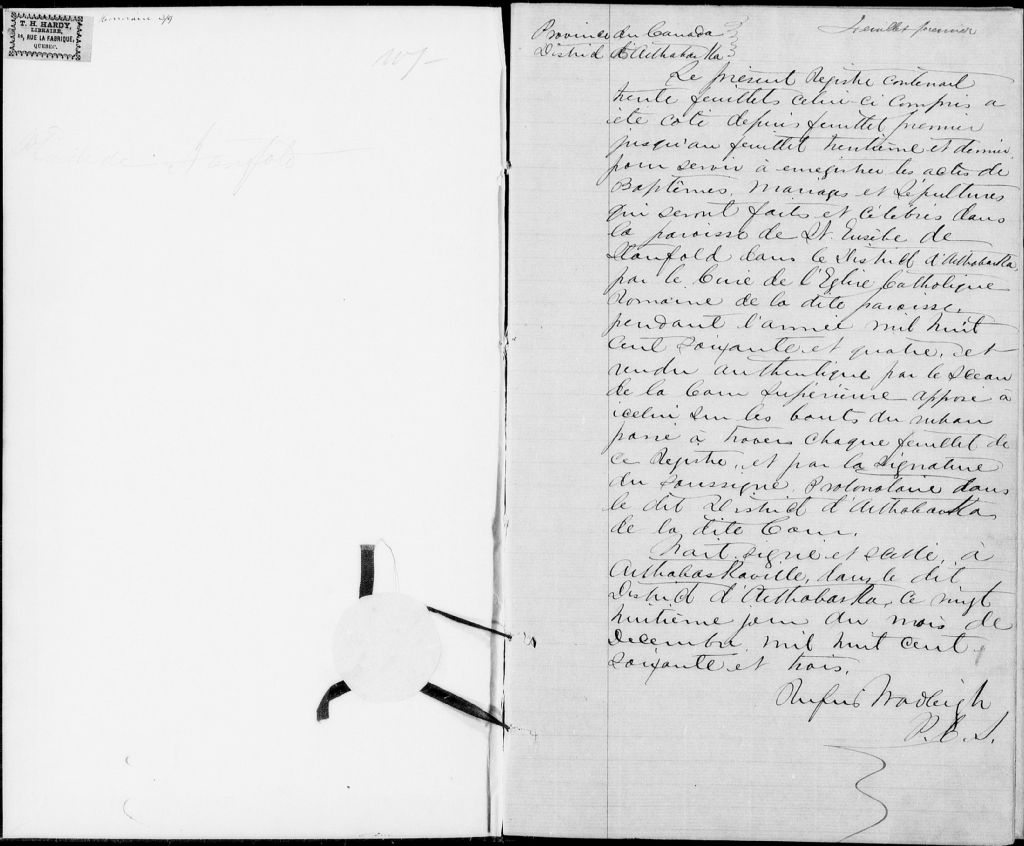 T. H. HARDY,
LIBRAIRE,
RUE LA FABRIQUE,
QUEBEC.
Stanfold
Feuillet premier
Province du Canada
District d'Arthabaska
Le présent Registre contenant
trente feuillets celui-ci compris a
été coté depuis feuillet premier
jusqu'au feuillet trentième et dernier,
pour servir à enregistrer les actes de
Baptêmes, Mariages et Sépultures
qui seront faits et célébrés dans
la paroisse de St. Eusèbe de
Stanfold dans le District d'Arthabaska,
par le Curé de l'Eglise Catholique
Romaine de la dite paroisse,
pendant l'année mil huit
cent soixante et quatre, et
rendu authentique par le Sceau
de la Cour Supérieure apposé à
icelui sur les bouts du ruban
passé à travers chaque feuillet de
ce Registre, et par la signature
du soussigné Protonotaire dans
le dit District d'Arthabaska
de la dite Cour.
Fait, signé et scellé, à
Arthabaskaville, dans le dit
District d'Arthabaska, ce vingt
huitième jour du mois de
Décembre, mil huit cent
soixante et trois.
Rufus Wadleigh
P. C. S.